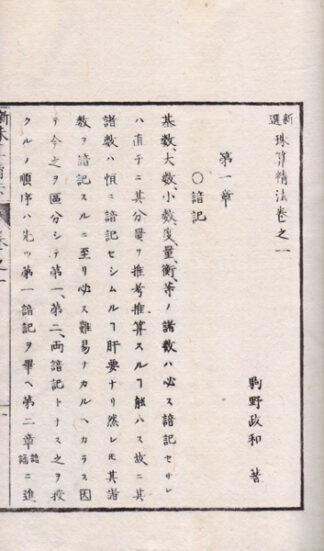 新選 珠算精法卷之一
駒野政和 著
第一章
〇諳記
基数大数、小数度、量、衡、等ノ諸数ハ必ス諳記セサレ
ハ直チニ其分量ヲ推考推算スルヿ能ハス故ニ其
諸数ハ慎ミ諳記セシムルヿ肝要ナリ然レ𪜈其諸
数ヲ諳記スルニ至リ必ス難易ナカルヘカラス因
リ今之ヲ區分シテ第一、第二、両諳記トナス之ヲ授
クルノ順序ハ先ツ第一諳記ヲ畢ヘ第二章諳誦ニ進